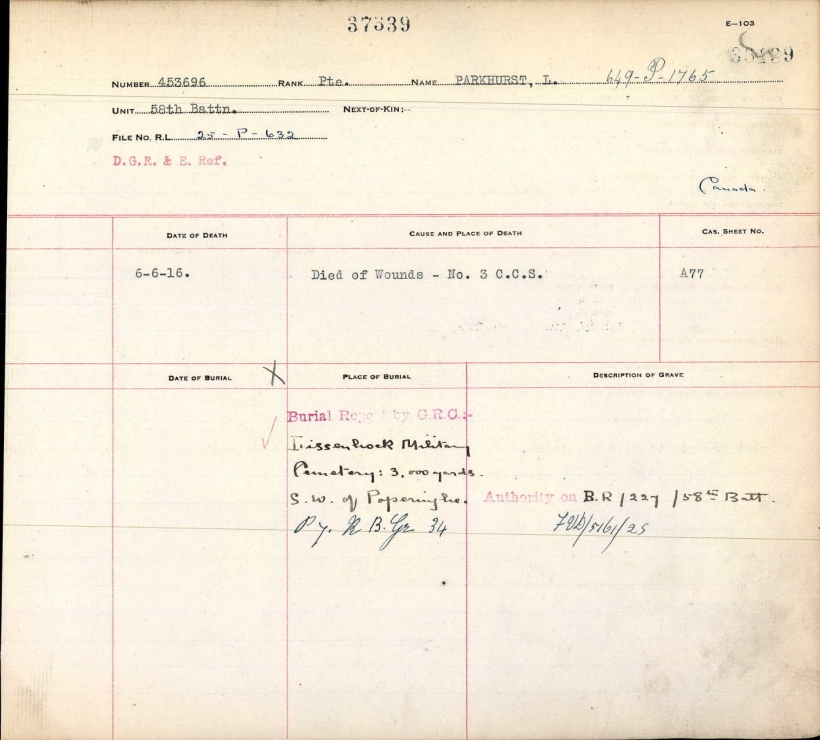 37539
E-103
NUMBER 453696 RANK Pte. NAME PARKHURST, L. 649-P-1765
UNIT 58th Battn. NEXT-OF-KIN:-
FILE No. R.L. 25-P-632
D.G.R. & E. Ref.
Canada.
DATE OF DEATH CAUSE AND PLACE OF DEATH CAS. SHEET NO.
6-6-16. Died of Wounds - No. 3 C.C.S. A77
DATE OF BURIAL X PLACE OF BURIAL DESCRIPTION OF GRAVE
Burial Report by G.R.C:-
Lissenhoek Military
Cemetery: 3,000 yards.
S.W. of Poperinghe. Authority on B.R/227/58th Batt.
R B. Gr 34